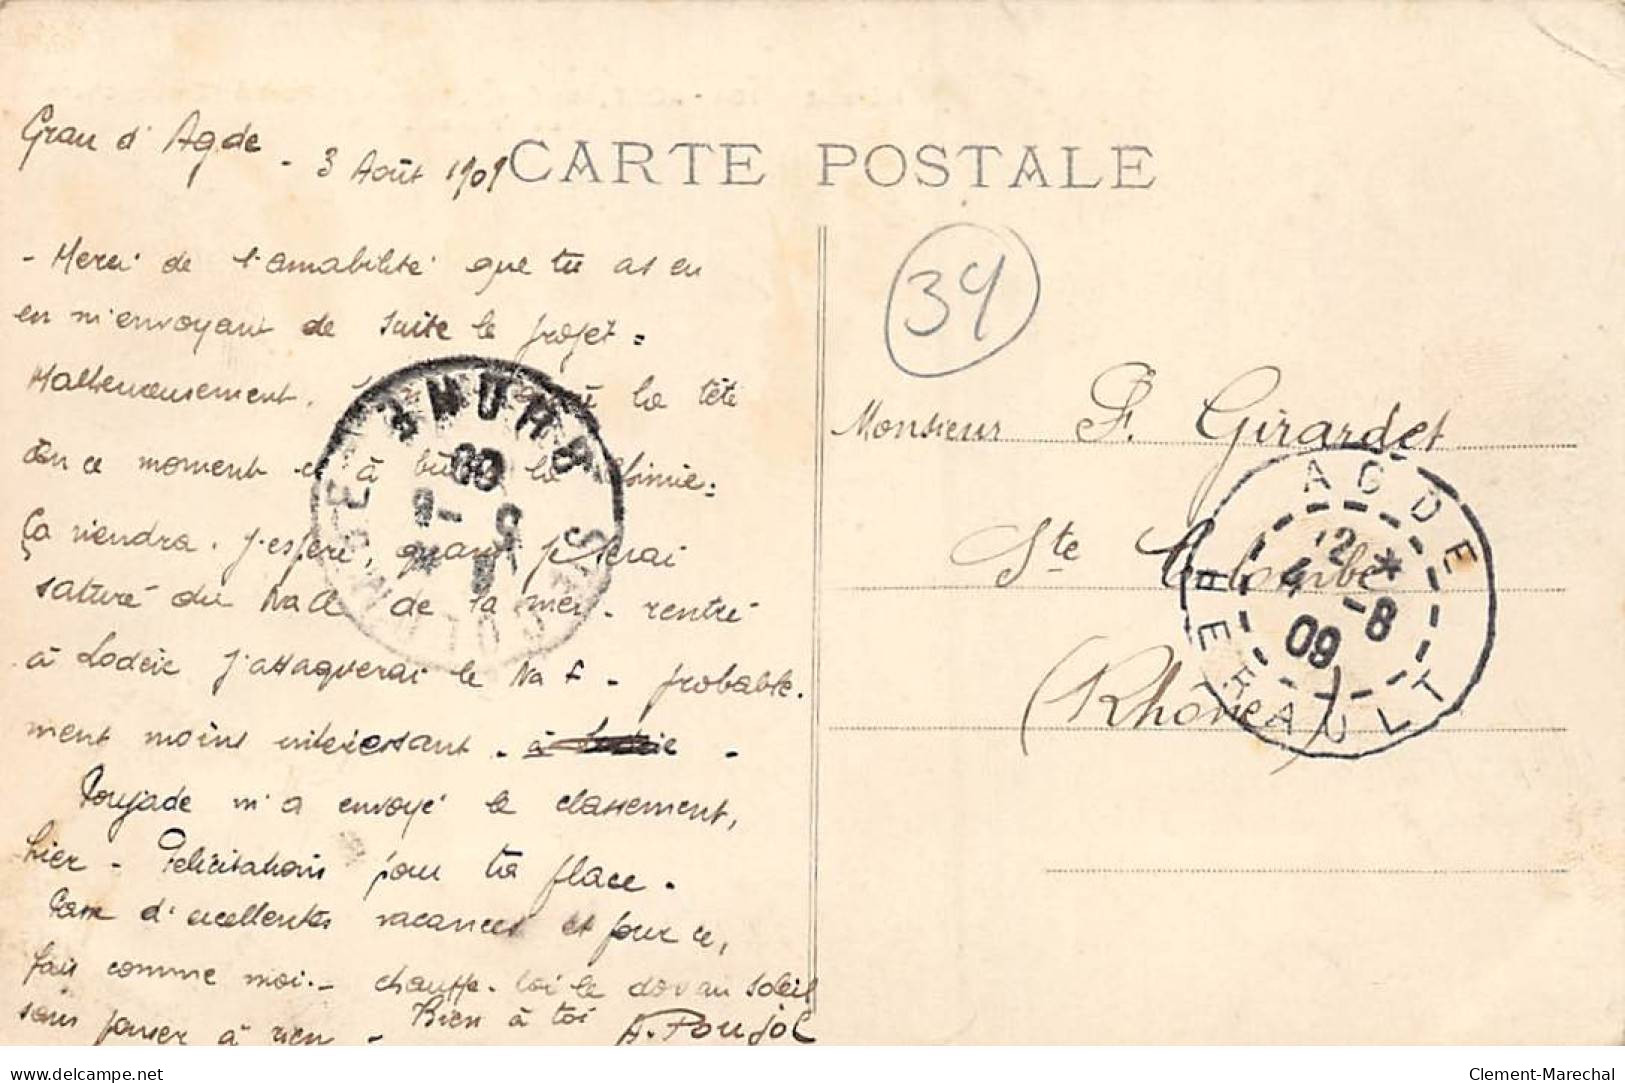 Grau d'Agde - 3 Août 1909
CARTE POSTALE
- Merci de l'amabilité que tu as eu
en m'envoyant de suite le projet =
Malheureusement. la tête
en ce moment à la chimie =
Ça viendra. j'espère, quand je serai
saturé du NaCl de la mer - rentré
à Lodève j'attaquerai le Na F - probable-
ment moins intéressant - à Lodève -
Poujade m'a envoyé le classement,
hier - Félicitations pour ta place -
Passe d'excellentes vacances et pour ce,
fais comme moi - chauffe-toi le dos au soleil
sans penser à rien - Bien à toi A. Poujol
34
Monsieur F. Girardet
Ste Colombe
(Rhône)
AGDE
12 *
4 -8
09
HERAULT
STE COLOMBE
RHONE
09
Delcampe.net
Clement-Marechal